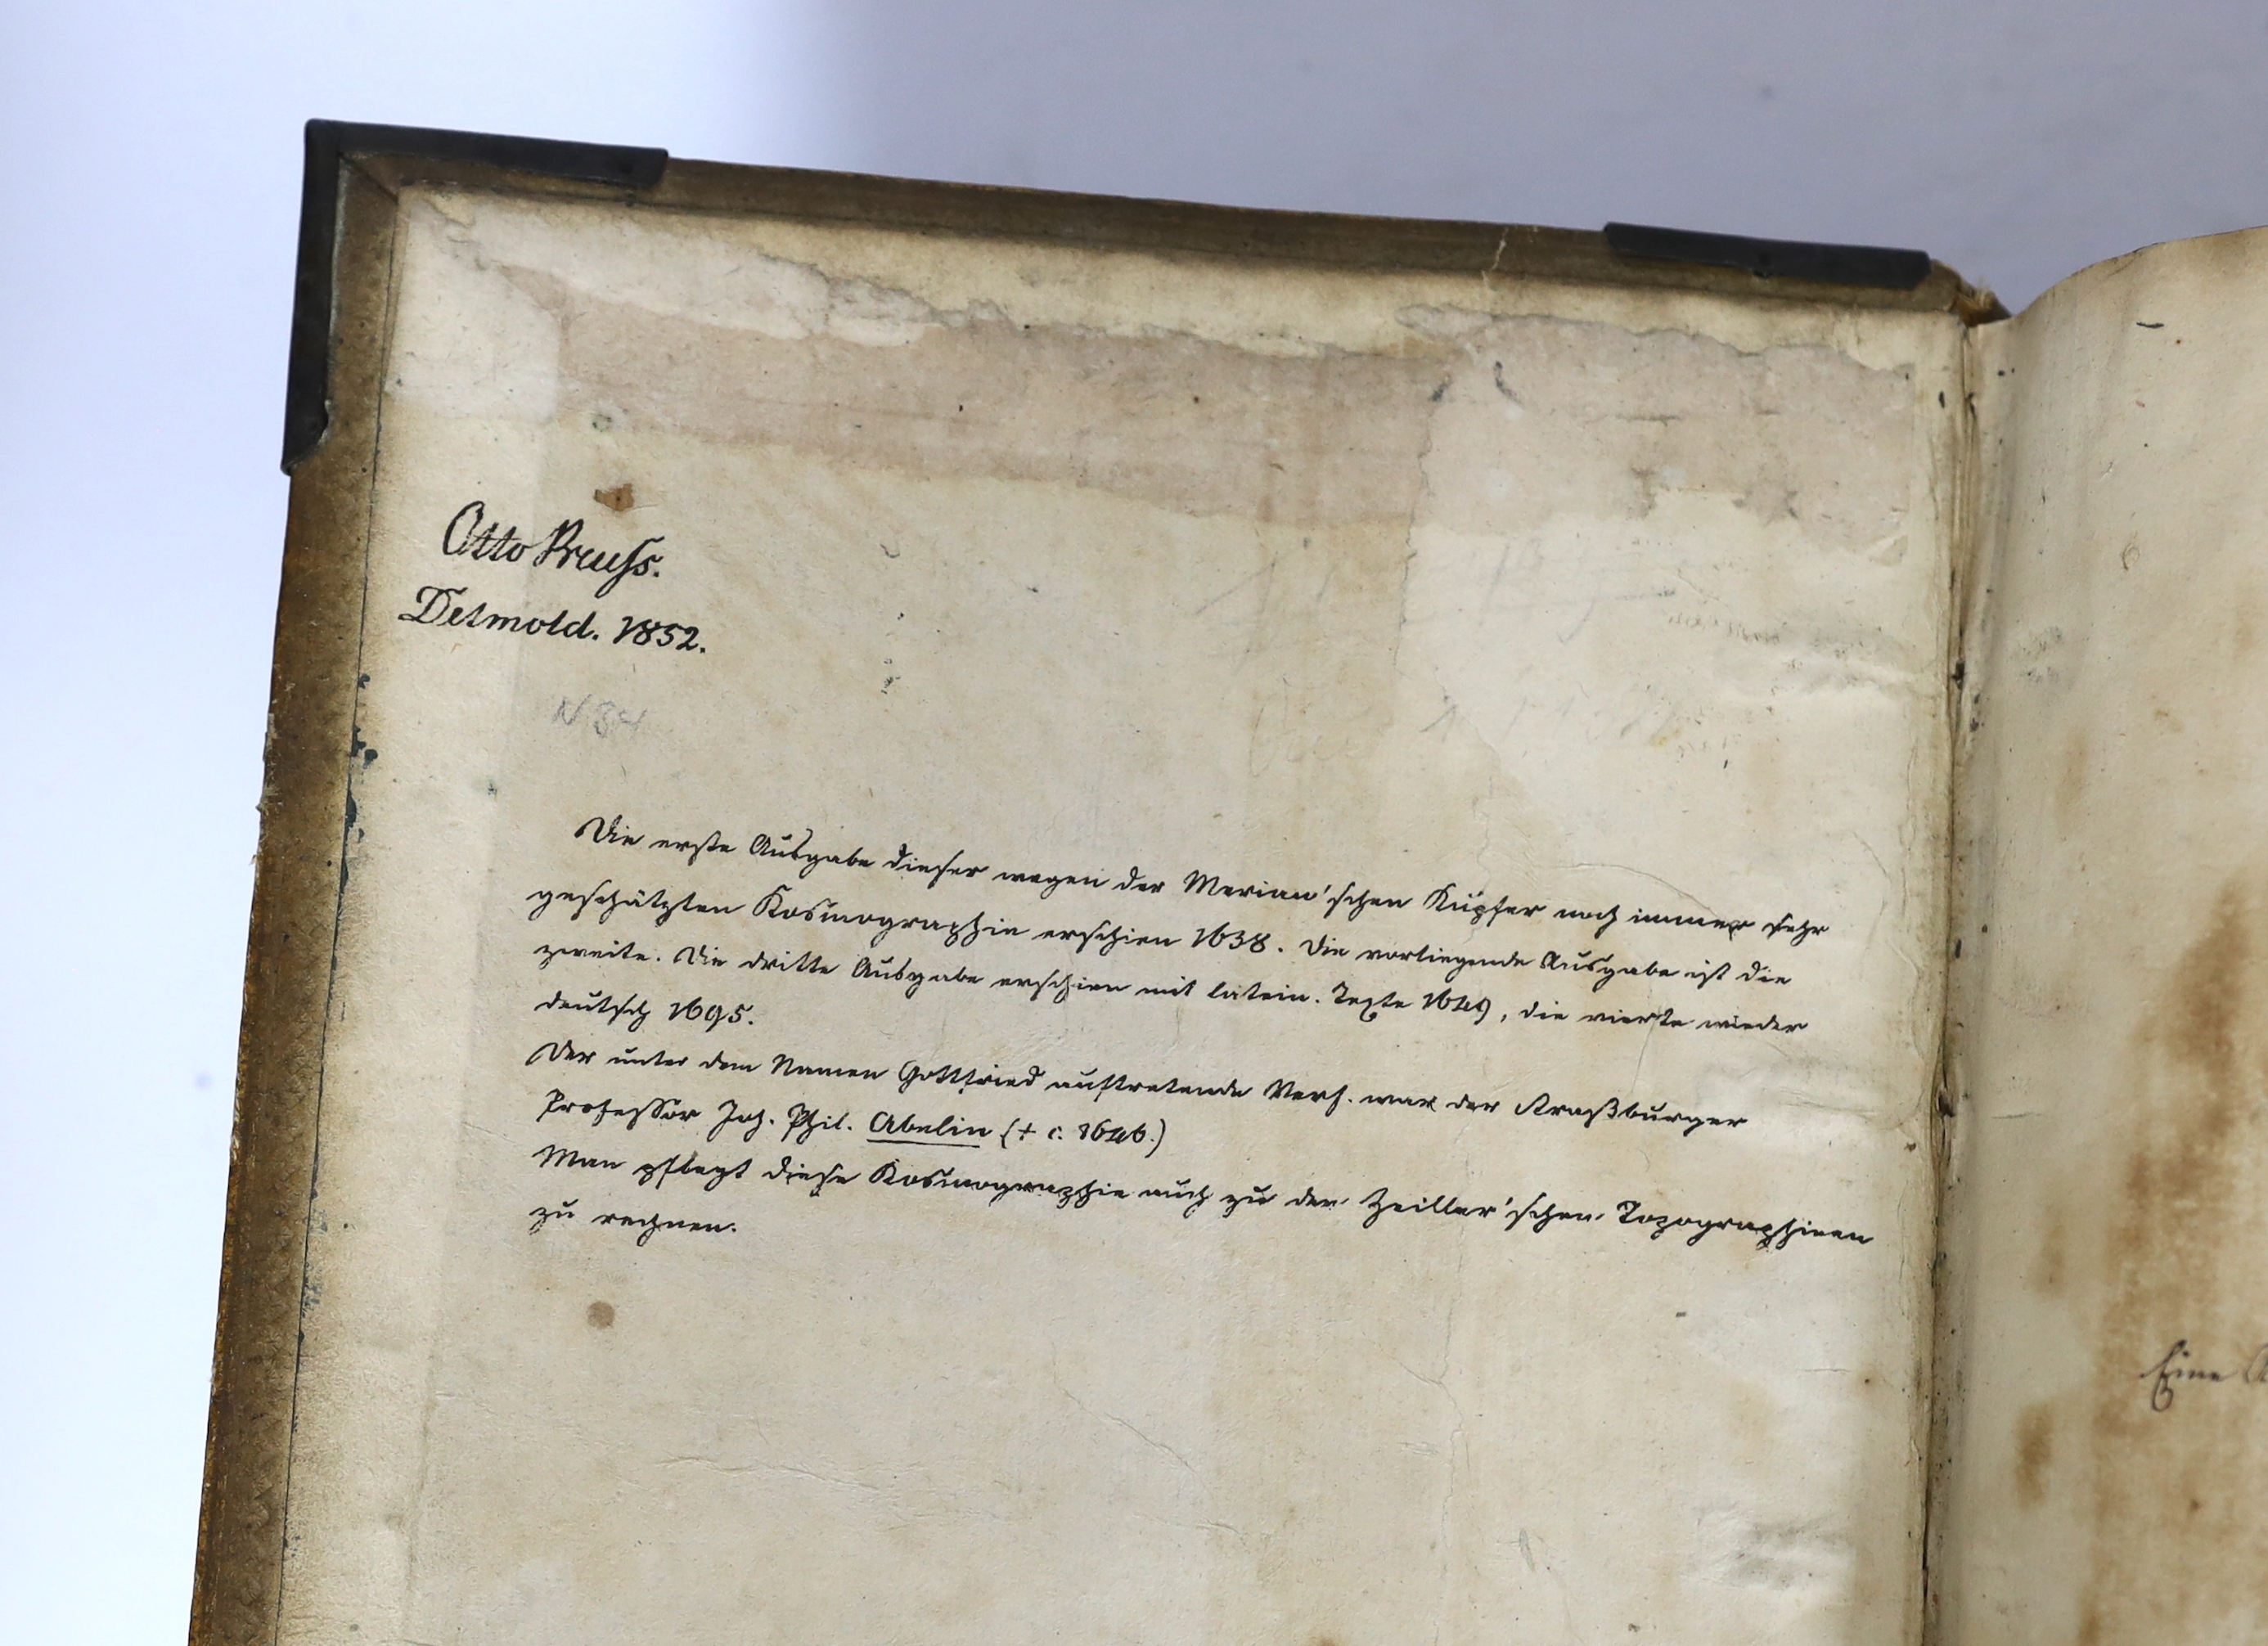 Otto Preuſs.
Detmold. 1852.
N 34
Die erste Ausgabe dieser wegen der Merian'schen Kupfer noch immer sehr
geschätzten Kosmographie erschien 1638. Die vorliegende Ausgabe ist die
zweite. Die dritte Ausgabe erschien mit latein. Texte 1649, die vierte wieder
deutsch 1695.
Der unter dem Namen Gottfried auftretende Verf. war der Straßburger
Professor Joh. Phil. Abelin († c. 1646.)
Man pflegt diese Kosmographie auch zu den Zeiller'schen Topographieen
zu rechnen.
Eine